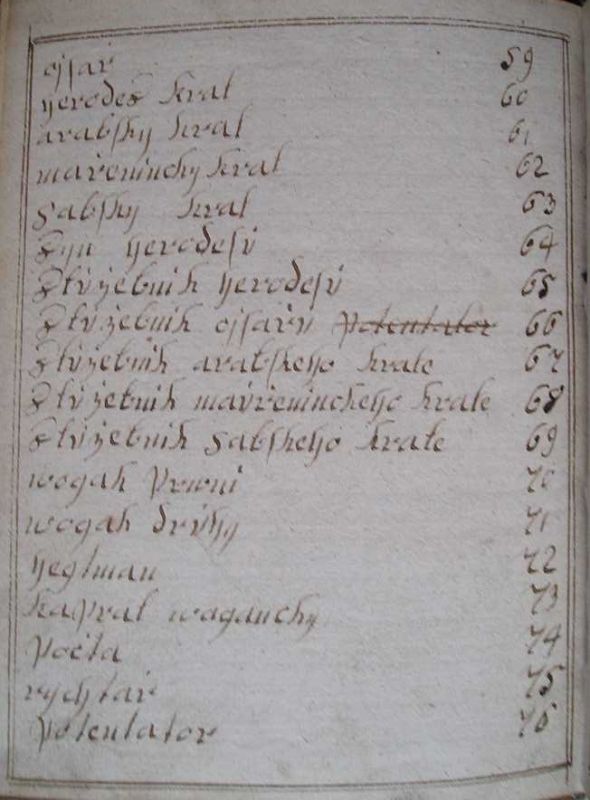 cjsař 59
herodes kral 60
arabsky kral 61
mařeninsky kral 62
sabsky kral 63
Syn herodesů 64
Slůžebnik herodesů 65
Slůžebnik cjsařů potentator 66
Slůžebnik arabskeho krale 67
Slůžebnik mauřeninskeho krale 68
Slůžebnik sabskeho krale 69
wogak prwni 70
wogak drůhy 71
hegtman 72
kapral wogansky 73
pocta 74
rychtař 75
potentator 76